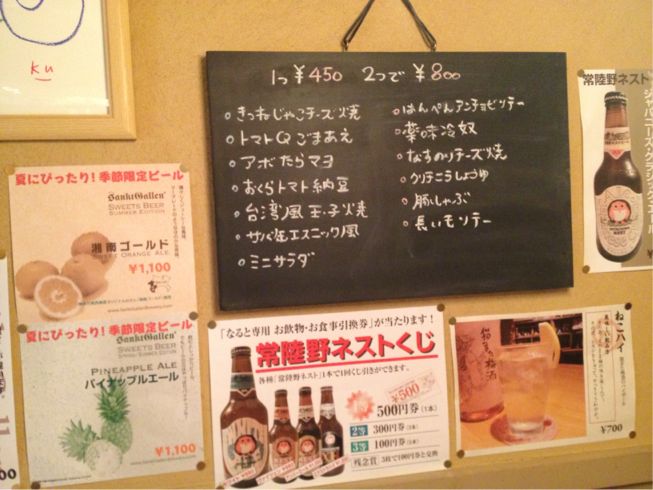 ku
1つ ¥450 2つで ¥800
・きつねじゃこチーズ焼
・トマトQごまあえ
・アボたらマヨ
・おくらトマト納豆
・台湾風玉子焼
・サバ塩エスニック風
・ミニサラダ
・はんぺんアンチョビソテー
・薬味冷奴
・なすのソテーズ焼
・豚しゃぶ
・長いモソテー
常陸野ネスト
夏にぴったり!季節限定ビール
SanktGallen
SWEETS BEER
SUMMER EDITION
湘南ゴールド
SWEET ORANGE ALE
¥1,100
夏にぴったり!季節限定ビール
SanktGallen
SWEETS BEER
PINEAPPLE ALE
パイナップルエール
¥1,100
「なると専用 お飲物・お食事引換券」が当たります!
常陸野ネストくじ
各種「常陸野ネスト」1本で1回くじ引きができます。
¥500
500円券(1本)
2等 300円券
3等 100円券
残念賞 3枚で100円券と交換
ねこハイ
¥700